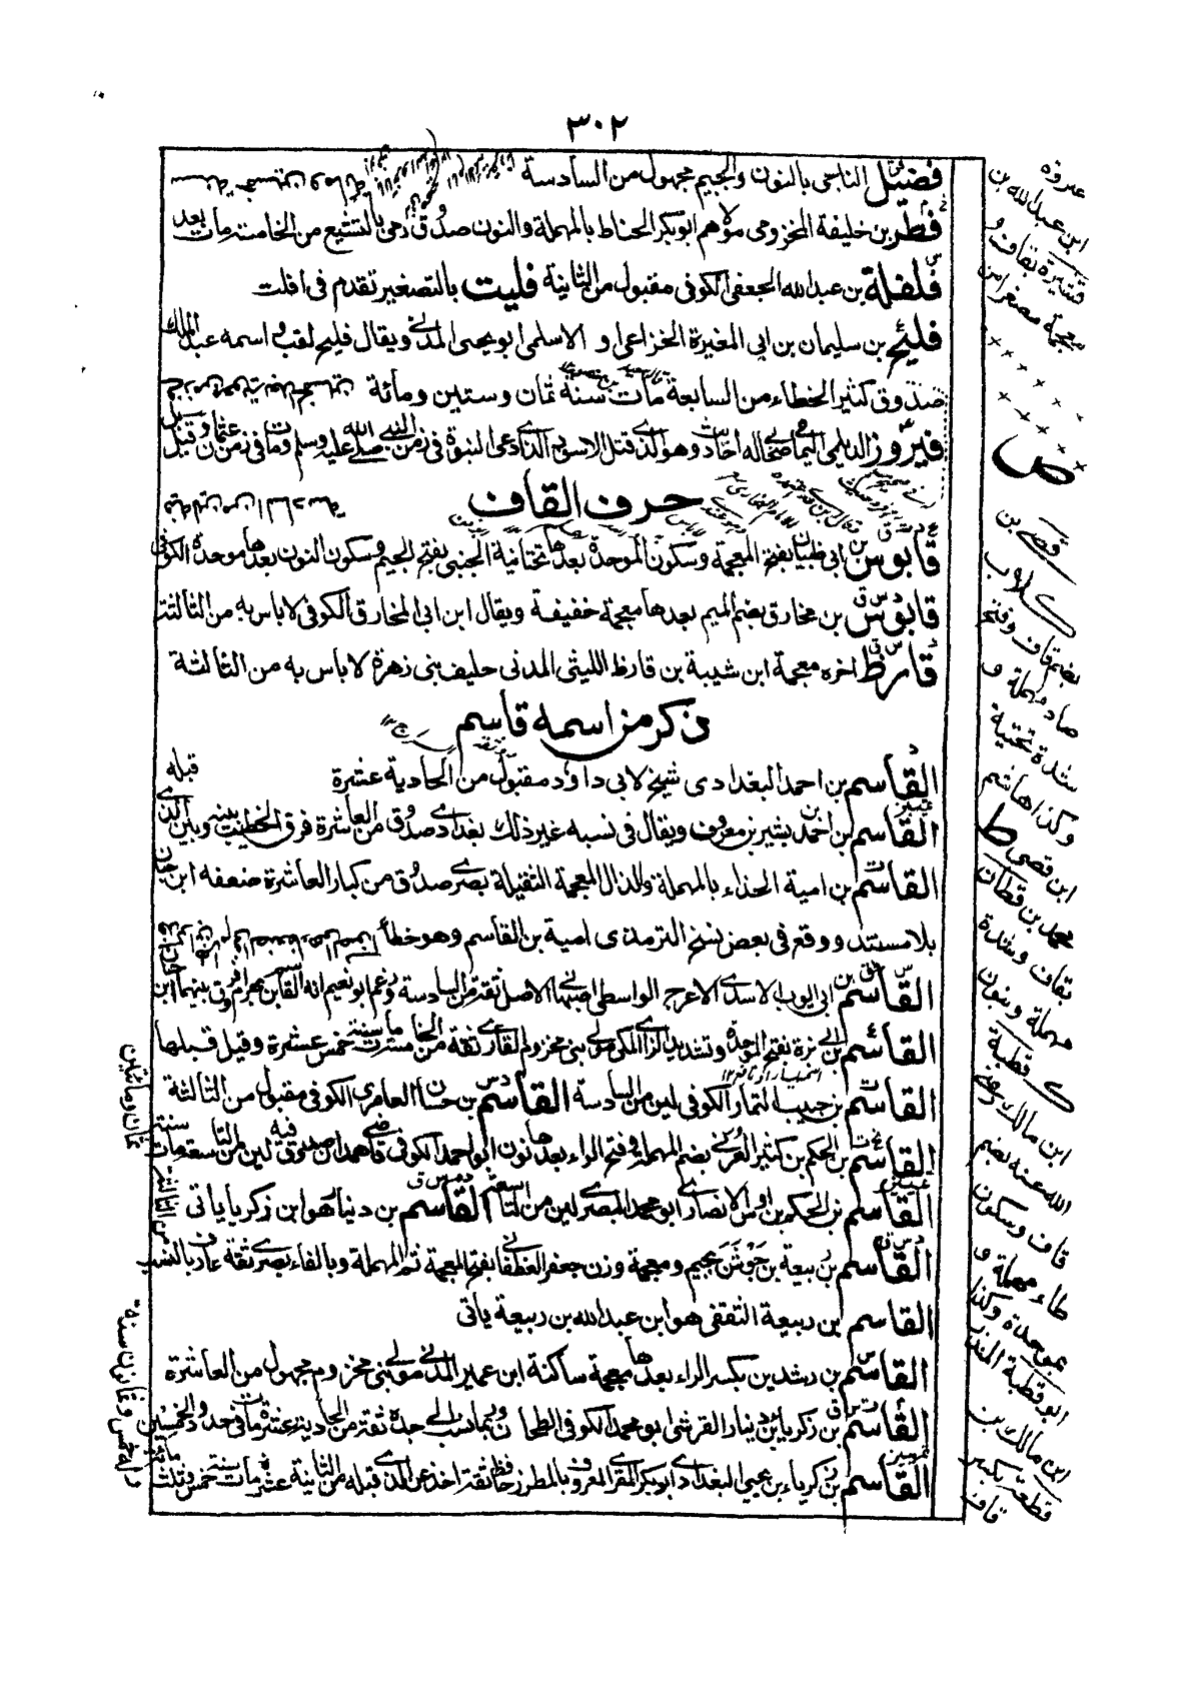 ٣٠٢
فضيل الناجى بالنون والجيم مجهول من السادسة
فطر بن خليفة المخزومى مولاهم ابوبكر الحناط بالمهملة والنون صدوق رمى بالتشيع من الخامسة مات بعد
فلفلة بن عبدالله الجعفى الكوفى مقبول من الثانية فليت بالتصغير تقدم فى افلت
فليح بن سليمان بن ابى المغيرة الخزاعى او الاسلمى ابو يحيى المدنى ويقال فليح لقب واسمه عبد الملك
صدوق كثير الخطاء من السابعة مات سنة ثمان وستين ومائة
فيروز الديلمى اليمانى صحابى له احاديث وهو الذى قتل الاسود الذى ادعى النبوة فى زمن النبى صلى الله عليه وسلم ومات فى زمن عثمان وقيل
حرف القاف
قابوس بن ابى ظبيان بفتح المعجمة وسكون الموحدة بعدها تحتانية الجنبى بفتح الجيم وسكون النون بعدها موحدة الكوفى
قابوس بن مخارق بضم الميم بعدها معجمة خفيفة ويقال ابن ابى المخارق الكوفى لاباس به من الثالثة
قارظ اخره معجمة ابن شيبة بن قارظ الليثى المدنى حليف بنى زهرة لا باس به من الثالثة
ذكر من اسمه قاسم
القاسم بن احمد البغدادى شيخ لابى داود مقبول من الحادية عشرة
القاسم بن احمد بن بشير بن معروف ويقال فى نسبه غير ذلك بغدادى صدوق من العاشرة فرق الخطيب بينه وبين الذى
قبله
القاسم بن امية الحذاء بالمهملة والذال المعجمة الثقيلة بصرى صدوق من كبار العاشرة ضعفه ابن حبان
بلا مستند ووقع فى بعض نسخ الترمذى امية بن القاسم وهو خطأ
القاسم بن ابى ايوب الاسدى الاعرج الواسطى اصبهانى الاصل ثقة من السادسة وزعم ابو نعيم انه القاسم بن بهرام وفرق بينهما ابن
حبان
القاسم بن ابى بزة بفتح الموحدة وتشديد الزاى المكى مولى بنى مخزوم القارى ثقة من الخامسة مات سنة خمس عشرة وقيل قبلها
القاسم بن حبيب التمار الكوفى لين من السادسة القاسم بن حسان العامرى الكوفى مقبول من الثالثة
القاسم بن الحكم بن كثير العرنى بضم المهملة وفتح الراء بعدها نون ابو احمد الكوفى قاضى همدان صدوق فيه لين من التاسعة مات سنة
ثمان ومائتين
القاسم بن الحكم بن اوس الانصارى ابو محمد البصرى لين من التاسعة القاسم بن دينار هو ابن زكريا ياتى
القاسم بن ربيعة بن جوشن بجيم ومعجمة وزن جعفر الغطفانى بفتح المعجمة ثم المهملة وبالفاء بصرى ثقة عارف بالنسب
من الثالثة
القاسم بن ربيعة الثقفى هو ابن عبدالله بن ربيعة ياتى
القاسم بن رشدين بكسر الراء بعدها معجمة ساكنة ابن عمير المدنى مولى بنى مخزوم مجهول من العاشرة
القاسم بن زكريا بن دينار القرشى ابو محمد الكوفى الطحان وربما نسب الى جده ثقة من الحادية عشرة مات فى حدود الخمسين
القاسم بن زكرياء بن يحيى البغدادى ابو بكر المقرى المعروف بالمطرز حافظ ثقة اخذ عن الذى قبله من الثانية عشرة مات سنة خمس وثلث
مائة
عروة
ابن عبدالله بن
قشيرة بقاف و
معجمة مصغر امن
ص
قصى بن
كلاب
بضم قاف وفتح
صاد مهملة و
شدة تحتية
وكذا هاشم
ابن قصى ط
محمد بن قطان
بقاف وشدة
مهملة وبنون
ك قطبة
ابن مالك رضى
الله عنه بضم
قاف وسكون
طاء مهملة و
بموحدة وكذا
ابو قطبة
ابن مالك بن
قطعة بكسر
قاف